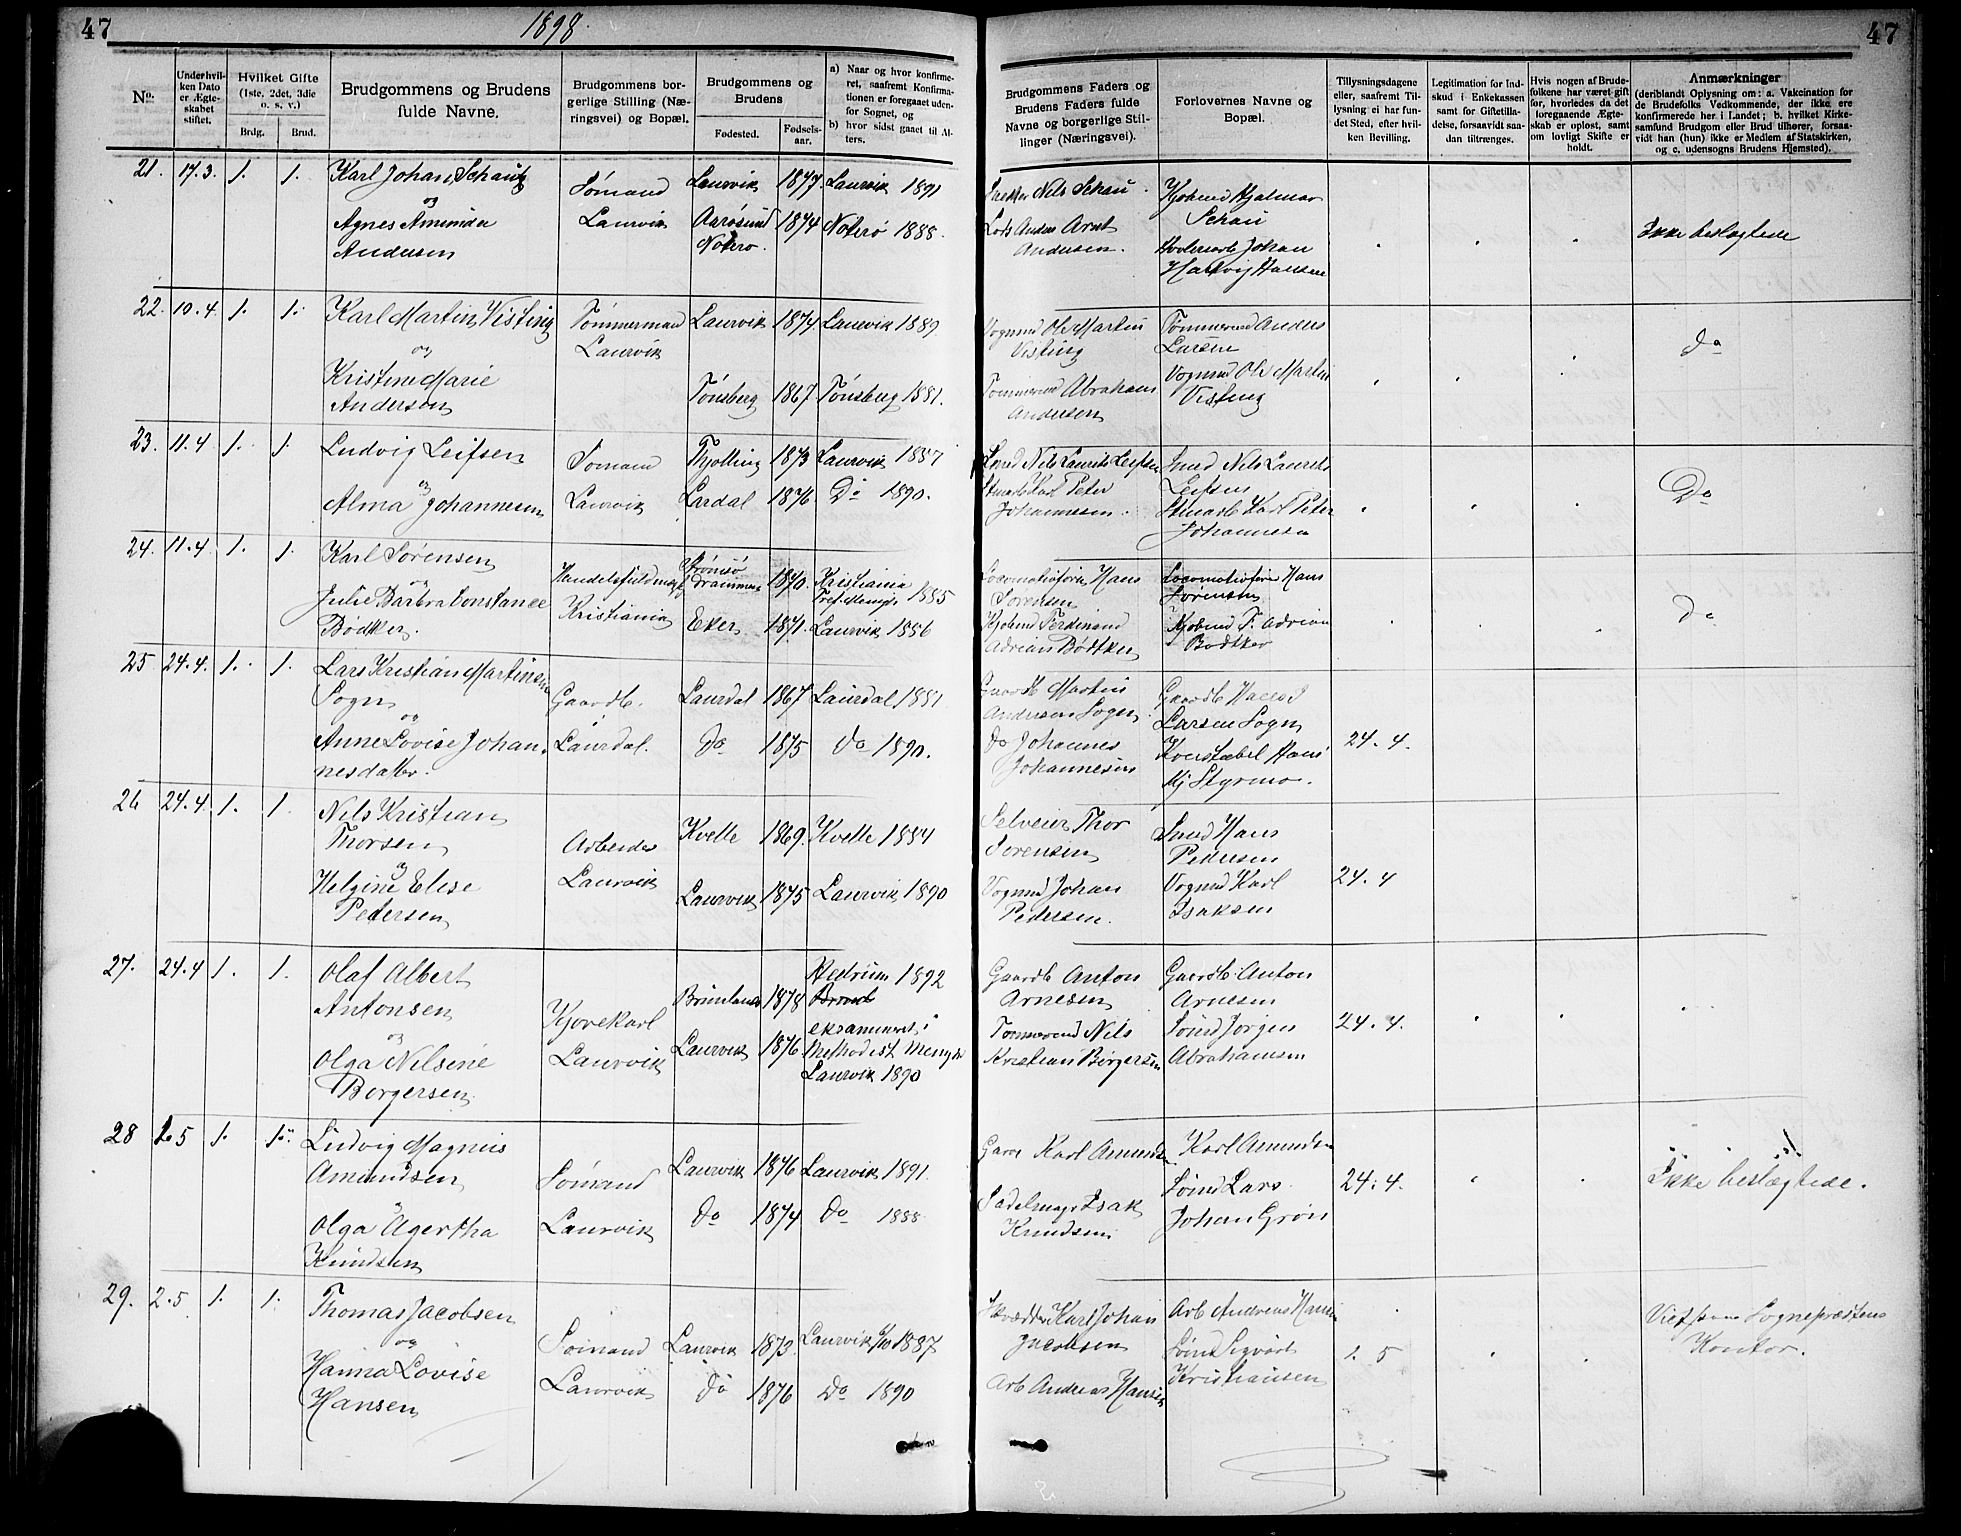 47
1898.
47
No.
Underhvilken Dato er Ægteskabet stiftet.
Hvilket Gifte (1ste, 2det, 3die o. s. v.)
Brdg.
Brud.
Brudgommens og Brudens fulde Navne.
Brudgommens borgerlige Stilling (Næringsvei) og Bopæl.
Brudgommens og Brudens
Fødested.
Fødselsaar.
a) Naar og hvor konfirmeret, saafremt Konfirmationen er foregaaet udenfor Sognet, og
b) hvor sidst gaaet til Alters.
Brudgommens Faders og Brudens Faders fulde Navne og borgerlige Stillinger (Næringsvei).
Forlovernes Navne og Bopæl.
Tillysningsdagene eller, saafremt Tillysning ei har fundet Sted, efter hvilken Bevilling.
Legitimation for Indskud i Enkekassen samt for Giftetilladelse, forsaavidt saadan tiltrænges.
Hvis nogen af Brudefolkene har været gift før, hvorledes da det foregaaende Ægteskab er opløst, samt om lovligt Skifte er holdt.
Anmærkninger
(deriblandt Oplysning om: a. Vakcination for de Brudefolks Vedkommende, der ikke ere konfirmerede her i Landet; b. hvilket Kirkesamfund Brudgom eller Brud tilhører, forsaavidt han (hun) ikke er Medlem af Statskirken, og c. udensogns Brudens Hjemsted).
21. 17.3. 1. 1. Karl Johan Schau
og
Agnes Amunda
Andersen
Sømand
Laurvik
Laurvik 1877. Laurvik 1891
Aarøsund 1874 Nøterø 1888.
Nøterø.
Nils Schau.
Lods Anders Arnt
Andersen.
Hjalmar
Schau
Johan
Hartvig Hansen
Ikke beslægtede
22. 10.4. 1. 1. Karl Martin Visting
og
Kristine Marie
Anderson
Tømmermand
Laurvik
Laurvik 1874 Laurvik 1889
Tønsberg 1867. Tønsberg 1881.
Vognmd Ole Martin
Visting
Tømmermd Abraham
Andersen
Tømmermd Anders
Larsen
Vognmd Ole Martin
Visting
do
23. 11.4 1. 1. Ludvig Leifsen
og
Alma Johannesen
Sømand
Laurvik
Thjølling 1873 Laurvik 1887
Lardal 1876 Do 1890.
Smed Nils Laurits Leifsen
Karl Peter
Johannesen.
Smed Nils Laurits
Leifsen
Karl Peter
Johannesen
Do
24. 11.4. 1. 1. Karl Sørensen
og
Julie Barbra Constance
Bødtker.
Handelsfuldmægt
Kristiania
Strømsø
Drammen 1870. Kristiania
1885
Eker 1871. Laurvik 1886
Locomotivfører Hans
Sørensen
Kjøbmd Ferdinand
Adrian Bødtker
Locomotivfører Hans
Sørensen
Kjøbmd F. Adrian
Bødtker
do
25 24.4. 1. 1. Lars Kristian Martinsen
Sogn
og
Anne Lovise Johannesdatter.
Gaardb.
Laurdal.
Laurdal 1867 Laurdal 1881
do 1875 do 1890.
Gaardb Martin
Andersen Sogn
do Johannes
Johannesen
Gaardb
Larsen Sogn
Konstabel Hans
Styrmo.
24.4.
26 24.4. 1. 1. Nils Kristian
Thorsen
og
Helgine Elise
Pedersen
Arbeider
Laurvik
Kvelle 1869. Kvelle 1884
Laurvik 1875 Laurvik 1890
Selveier Thor
Sørensen
Vognmd Johan
Pedersen.
Smed Hans
Pedersen
Vognmd Karl
Isaksen
24.4
27. 24.4 1. 1. Olaf Albert
Antonsen
og
Olga Nilsine
Borgersen
Kjørekarl
Laurvik
Brunlanes 1878 Hedrum 1892
Laurvik 1876 eksamineret i
Methodist Menigh
Laurvik 1890
Gaardb Anton
Arnesen
Tømmermd Nils
Kristian Børgersen
Gaardb. Anton
Arnesen
Sømd Jørgen
Abrahamsen
24.4.
28 1.5 1. 1. Ludvig Magnus
Amundsen
og
Olga Agertha
Knudsen
Sømand
Laurvik
Laurvik 1876 Laurvik 1891.
do 1874 do 1888
Karl Amundsen
Sadelmager Isak
Knudsen
Karl Amundsen
Sømd Lars
Johan Grøn
24.4.
Ikke beslægtede.
29. 2.5 1. 1. Thomas Jacobsen
og
Hanna Lovise
Hansen
Sømand
Laurvik
Laurvik 1873. Laurvik 1887
do 1876 Do 1890
Skrædder Karl Johan
Jacobsen
Arb Andreas Hansen
Arb Andreas Hansen
Sømd Sigvart
Kristiansen
1. 5
Viet paa Sogneprestens
Kontor.